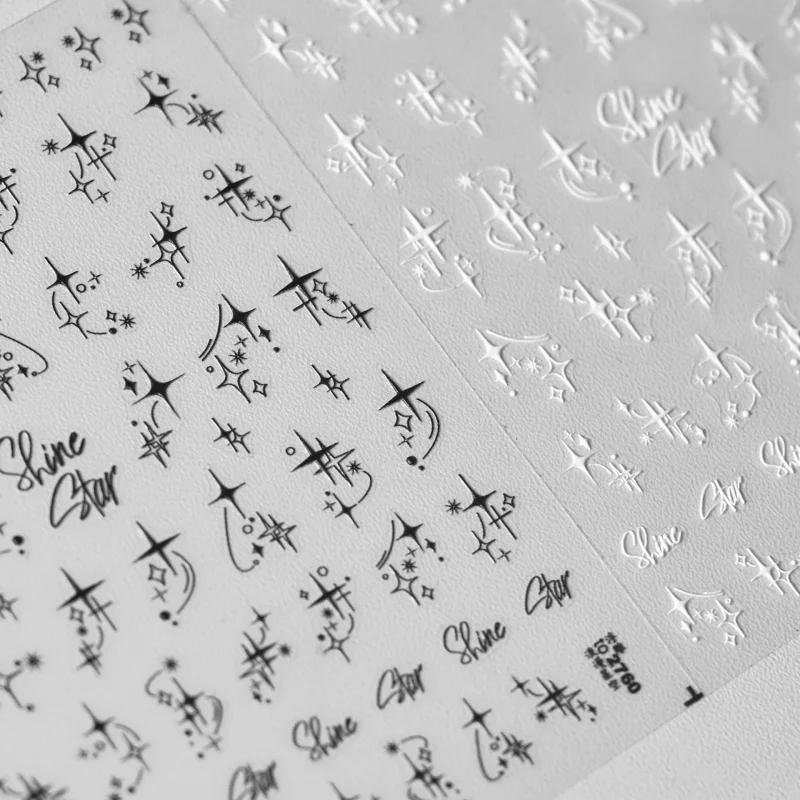 Shine
Star
Shine
Star
Shine
Star
Shine
Star
Shine
Star
Shine
Star